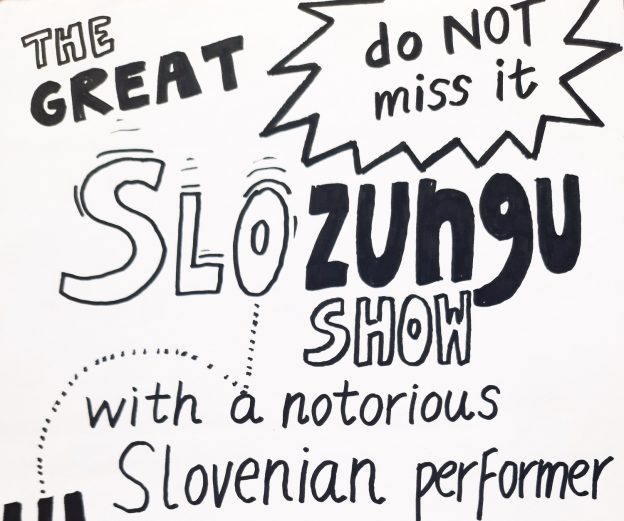 THE
GREAT
do NOT
miss it
SLOzungu
SHOW
with a notorious
Slovenian performer